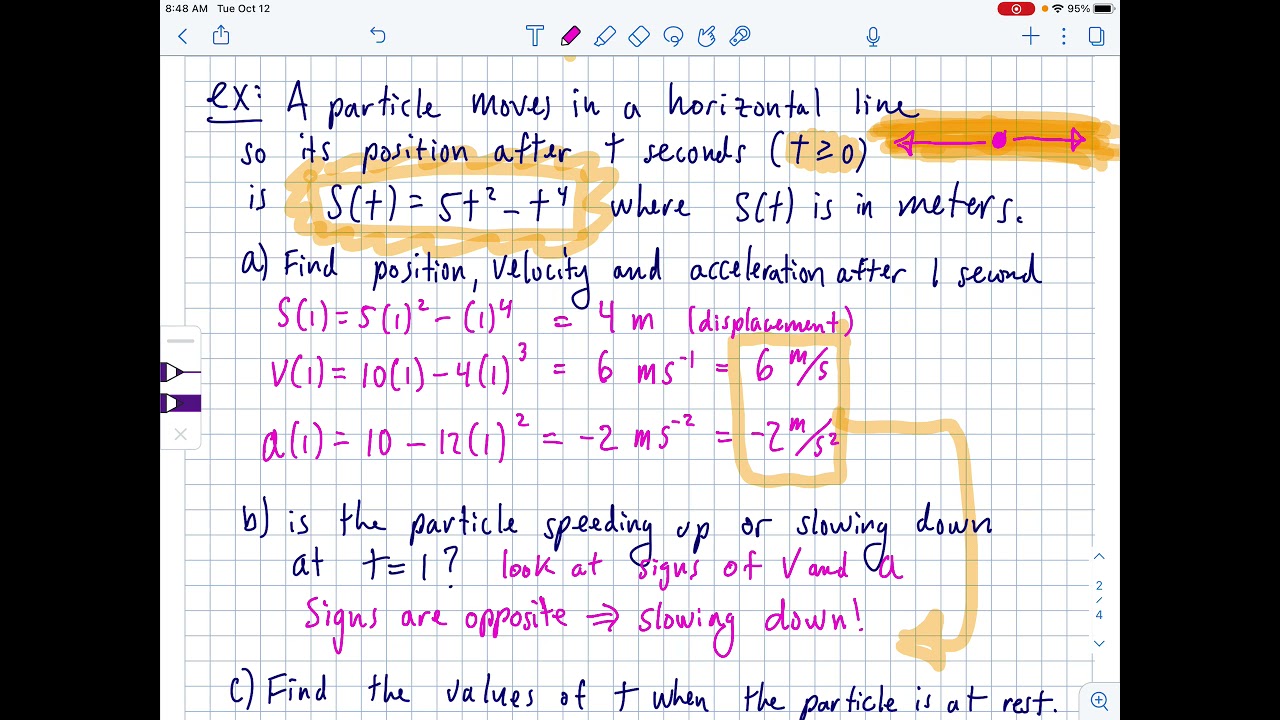 8:48 AM Tue Oct 12
95%
T
ex: A particle moves in a horizontal line
so its position after t seconds (t ≥ 0)
is S(t) = 5t² - t⁴ where S(t) is in meters.
a) Find position, velocity and acceleration after 1 second
S(1) = 5(1)² - (1)⁴ = 4 m (displacement)
V(1) = 10(1) - 4(1)³ = 6 ms⁻¹ = 6 m/s
a(1) = 10 - 12(1)² = -2 ms⁻² = -2 m/s²
b) is the particle speeding up or slowing down
at t = 1? look at signs of V and a
Signs are opposite ⇒ slowing down!
2
/
4
c) Find the values of t when the particle is at rest.